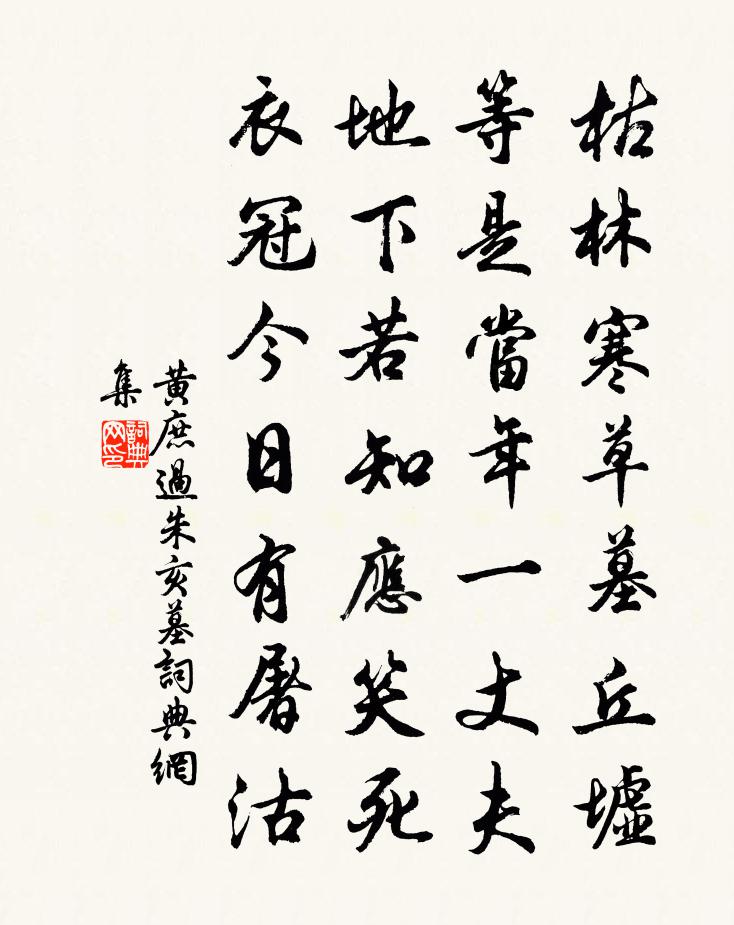 枯林寒草墓丘墟
等是當年一丈夫
地下若知應笑死
衣冠今日有屠沽
黃庶過朱亥墓詞典網
集
詞典網印